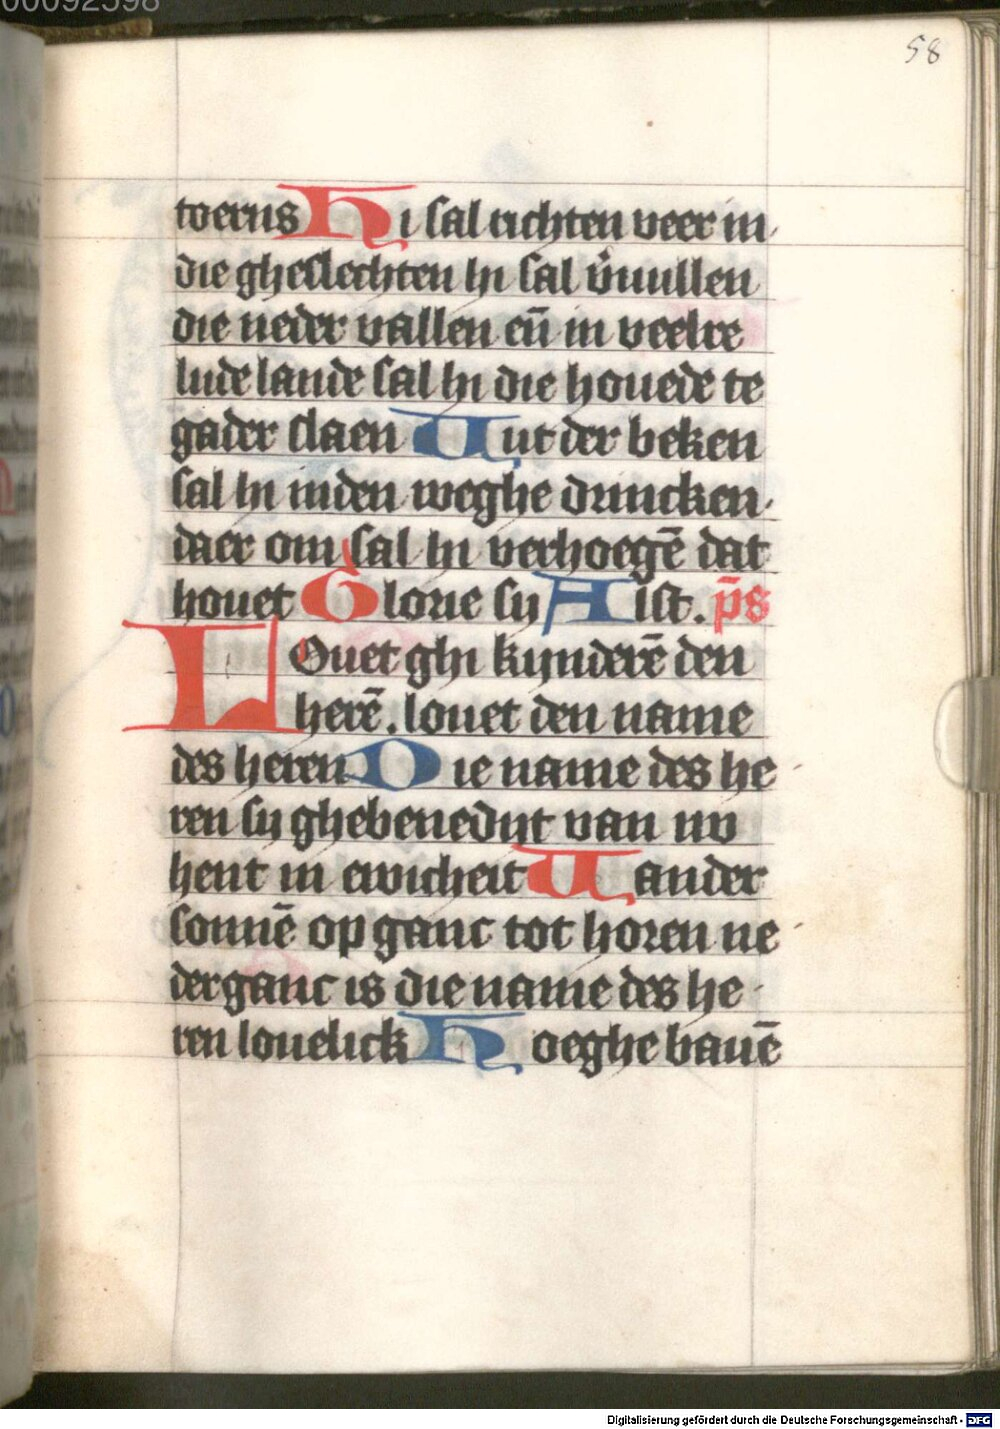 00092598
58
toerns Hi sal richten veer in
die gheslechten hi sal v̄uullen
die neder vallen en̄ in veelre
lude lande sal hi die houede te
gader slaen Uut der beken
sal hi inden weghe drincken
daer om sal hi verhoegē dat
houet Glorie sy Alst. p̄s
LOuet ghi kynderē den
herē. louet den name
des heren Die name des he
ren sy ghebenedijt van nv
hent in ewicheit Uander
sonnē op ganc tot horen ne
derganc is die name des he
ren louelick Hoeghe bauē
Digitalisierung gefördert durch die Deutsche Forschungsgemeinschaft - DFG